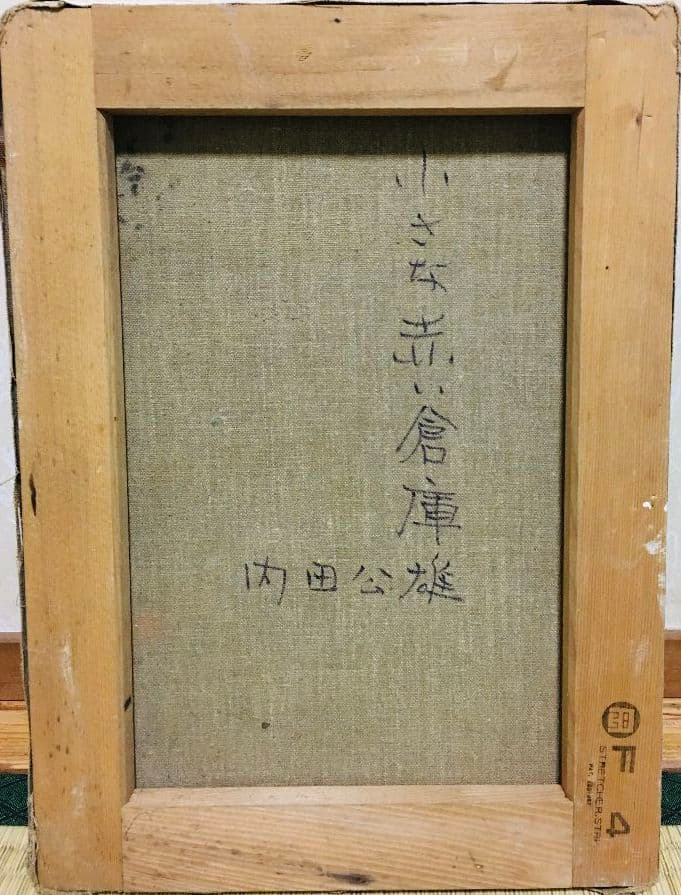 小さな赤い倉庫
内田公雄
F 4
STRETCHER.